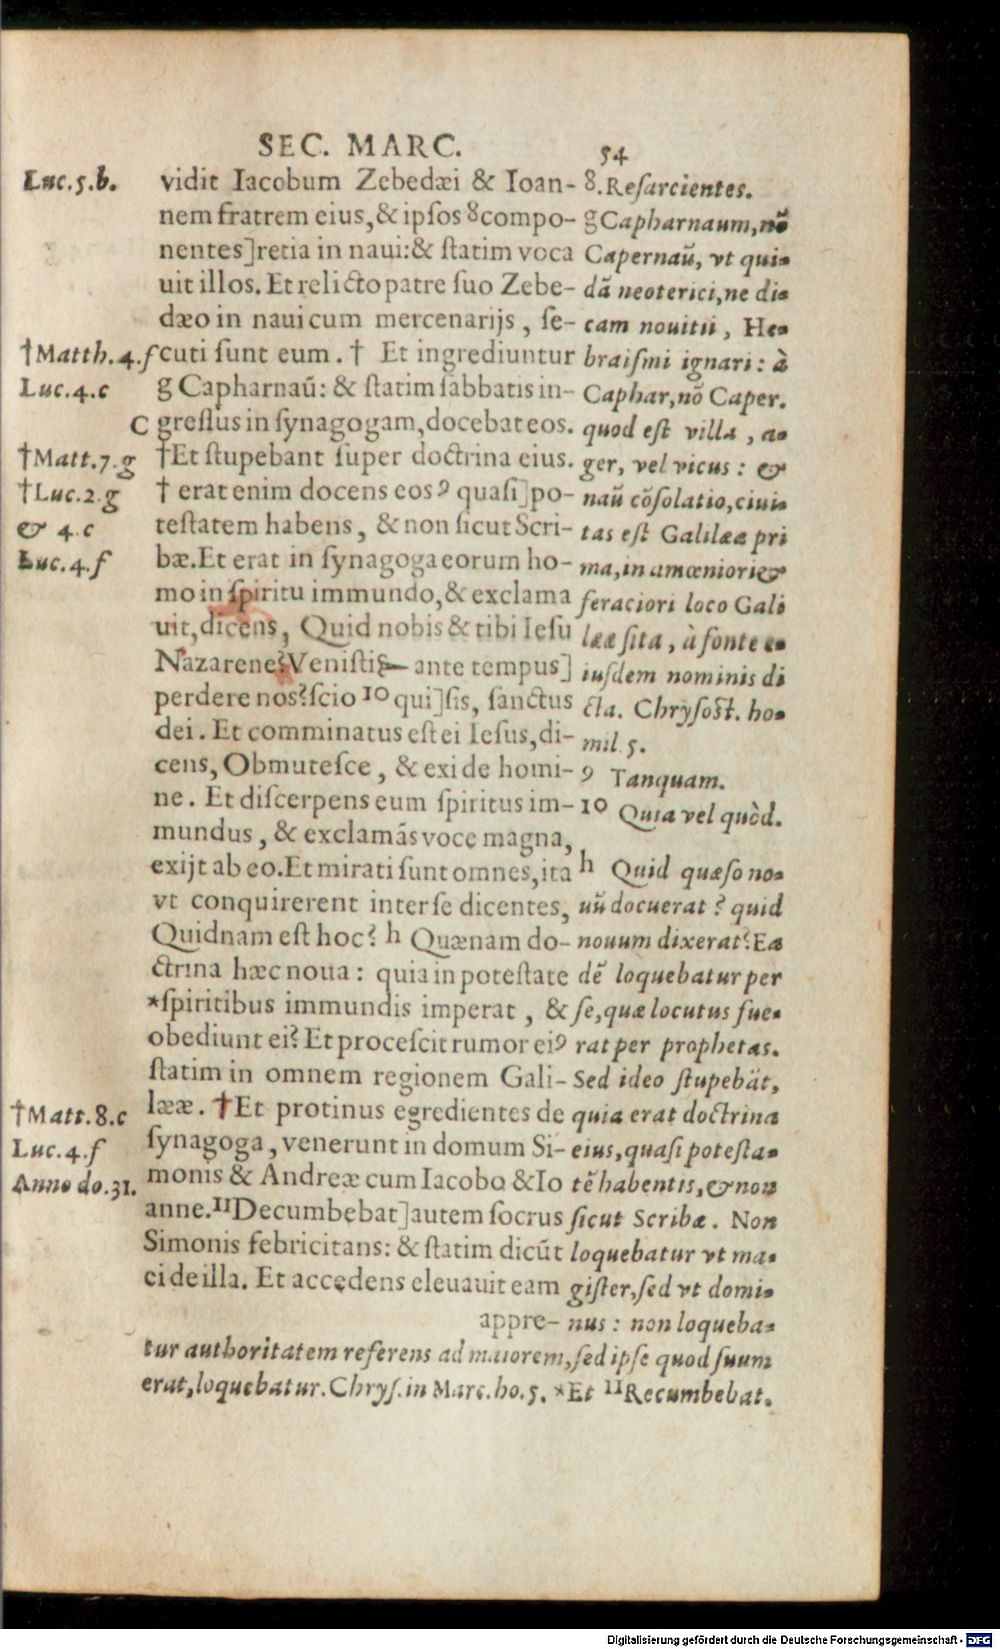 SEC. MARC. 54
Luc.5.b.
†Matth.4.f
Luc.4.c
C
†Matt.7.g
†Luc.2.g
& 4.c
Luc.4.f
†Matt.8.c
Luc.4.f
Anno do.31.
vidit Iacobum Zebedæi & Ioan-
nem fratrem eius,& ipſos 8compo-
nentes]retia in naui:& ſtatim voca
uit illos. Et relicto patre ſuo Zebe-
dæo in naui cum mercenarijs, ſe-
cuti ſunt eum. † Et ingrediuntur
g Capharnaũ: & ſtatim ſabbatis in-
greſſus in ſynagogam,docebat eos.
†Et ſtupebant ſuper doctrina eius.
† erat enim docens eos 9 quaſi]po-
teſtatem habens, & non ſicut Scri-
bæ.Et erat in ſynagoga eorum ho-
mo in ſpiritu immundo,& exclama
uit,dicens, Quid nobis & tibi Ieſu
Nazarene?Veniſti ante tempus]
perdere nos?ſcio 10 qui]ſis, ſanctus
dei. Et comminatus eſt ei Ieſus,di-
cens, Obmuteſce, & exi de homi-
ne. Et diſcerpens eum ſpiritus im-
mundus, & exclamãs voce magna,
exijt ab eo.Et mirati ſunt omnes,ita
vt conquirerent inter ſe dicentes,
Quidnam eſt hoc? h Quænam do-
ctrina hæc noua: quia in poteſtate
*ſpiritibus immundis imperat, &
obediunt ei? Et proceſcit rumor ei9
ſtatim in omnem regionem Gali-
lææ. †Et protinus egredientes de
ſynagoga, venerunt in domum Si-
monis & Andreæ cum Iacobo & Io
anne.11Decumbebat]autem ſocrus
Simonis febricitans: & ſtatim dicũt
ci de illa. Et accedens eleuauit eam
appre-
8.Reſarcientes.
gCapharnaum,nõ
Capernaũ, vt qui-
dã neoterici,ne di-
cam nouitii, He-
braiſmi ignari: à
Caphar,nõ Caper.
quod eſt villa, a-
ger, vel vicus: &
naũ cõſolatio,ciui-
tas eſt Galilææ pri
ma,in amœniori&
feraciori loco Gali
lææ ſita, à fonte e-
iuſdem nominis di
cta. Chryſoſt. ho-
mil.5.
9 Tanquam.
10 Quia vel quòd.
h Quid quæſo no-
uũ docuerat? quid
nouum dixerat? Ea
dẽ loquebatur per
ſe,quæ locutus fue-
rat per prophetas.
Sed ideo ſtupebãt,
quia erat doctrina
eius,quaſi poteſta-
tẽ habentis,& non
ſicut Scribæ. Non
loquebatur vt ma-
giſter,ſed vt domi-
nus: non loqueba-
tur authoritatem referens ad maiorem,ſed ipſe quod ſuum
erat,loquebatur.Chryſ.in Marc.ho.5. *Et 11Recumbebat.
Digitalisierung gefördert durch die Deutsche Forschungsgemeinschaft - DFG